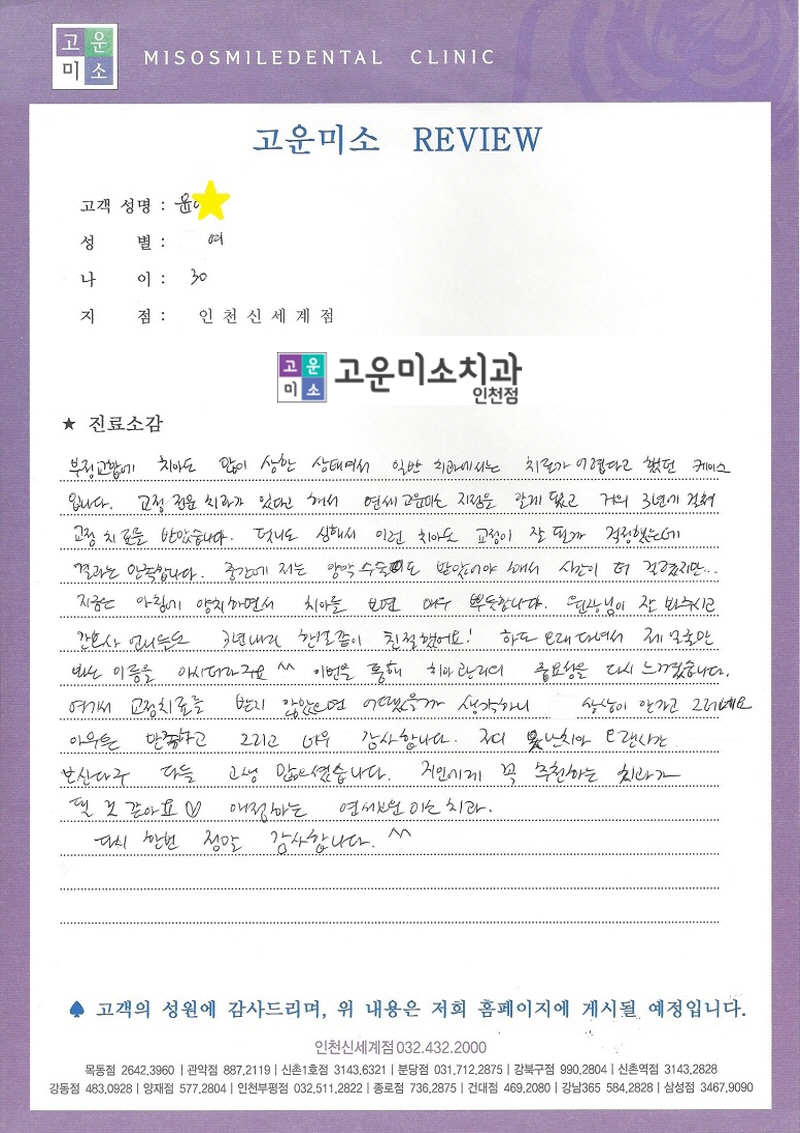 고운
미소
MISOSMILEDENTAL CLINIC
고운미소 REVIEW
고객 성명 : 윤
성 별 : 여
나 이 : 30
지 점 : 인천신세계점
고운
미소
고운미소치과
인천점
★ 진료소감
부정교합에 치아도 많이 상한 상태여서 일반 치과에서는 치료가 어렵다고 했던 케이스
입니다. 교정 전문 치과가 있다고 해서 연세고운미소 지점을 알게 됐고 거의 3년에 걸쳐
교정 치료를 받았습니다. 덧니도 심해서 이런 치아도 교정이 잘 될까 걱정했는데
결과는 만족합니다. 중간에 저는 양악 수술도 받았어야 해서 시간이 더 걸렸지만...
지금은 아침에 양치하면서 치아를 보면 매우 뿌듯합니다. 원장님이 잘 봐주시고
간호사 언니들도 3년내내 한결같이 친절했어요! 하도 오래 다녀서 제 얼굴만
봐도 이름을 아시더라구요 ^^ 이번을 통해 치아관리의 중요성을 다시 느꼈습니다.
여기서 교정치료를 받지 않았으면 어땠을까 생각하니 상상이 안가고 그러네요
아무튼 만족하고 그리고 너무 감사합니다. 저의 못난치아 오랜시간
보신다구 다들 고생 많으셨습니다. 지인에게 꼭 추천하는 치과가
될 것 같아요 ♡ 애정하는 연세고운미소치과.
다시 한번 정말 감사합니다. ^^
♠ 고객의 성원에 감사드리며, 위 내용은 저희 홈페이지에 게시될 예정입니다.
인천신세계점 032.432.2000
목동점 2642.3960 | 관악점 887.2119 | 신촌1호점 3143.6321 | 분당점 031.712.2875 | 강북구점 990.2804 | 신촌역점 3143.2828
강동점 483.0928 | 양재점 577.2804 | 인천부평점 032.511.2822 | 종로점 736.2875 | 건대점 469.2080 | 강남365 584.2828 | 삼성점 3467.9090